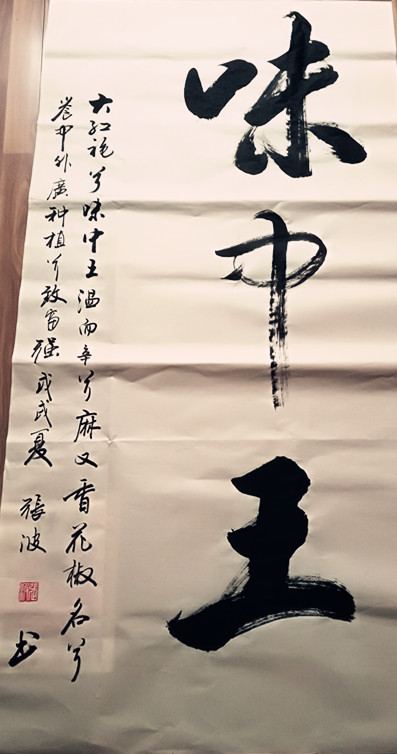 味中王
大红袍兮味中王温而辛兮麻又香花椒名兮
誉中外廣种植兮效富强戊戌夏 張波 书